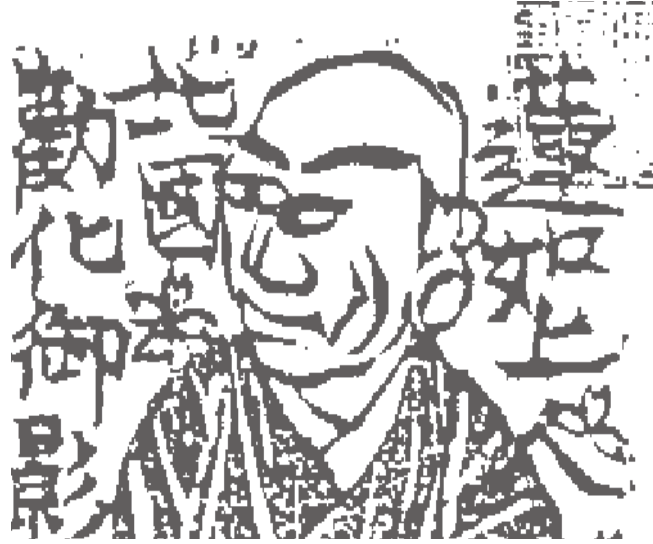 蓮如上人
北國
勸化御影